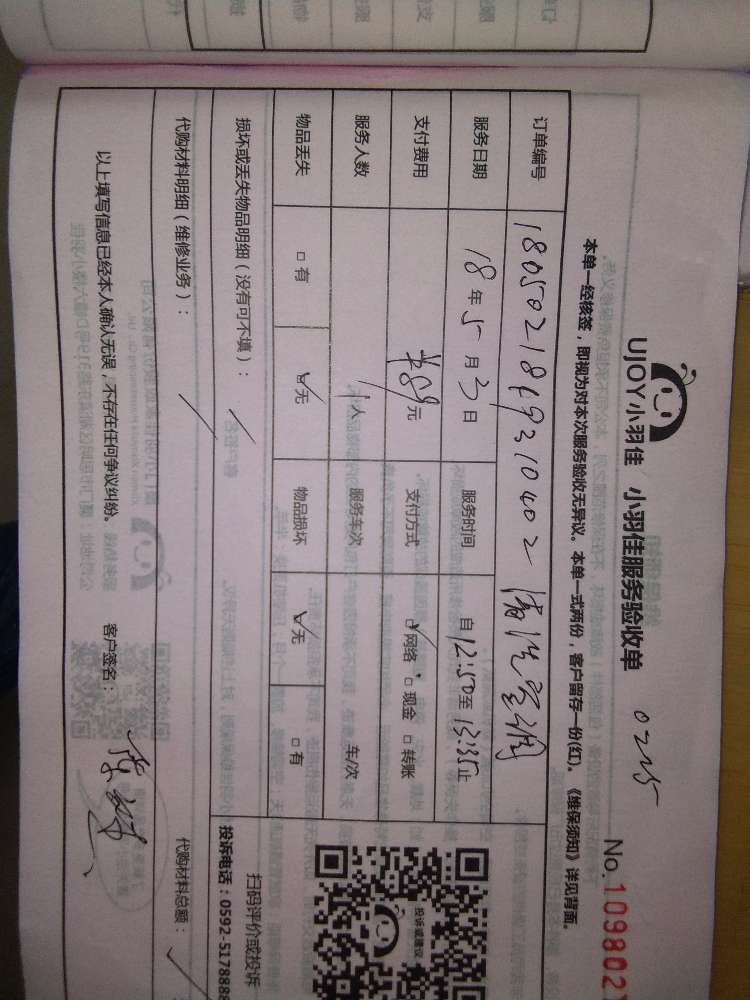 UJOY小羽佳 小羽佳服务验收单 0215
No.109802
本单一经核签，即视为对本次服务验收无异议。本单一式两份，客户留存一份(红)。《维保须知》详见背面。
订单编号 1805021869310402 清洗空调
服务日期 18年5月3日 服务时间 自12:50至13:35止
支付费用 ¥89元 支付方式 ☑网络 □现金 □转账
服务人数 1人 服务车次 车/次
物品丢失 □有 ☑无 物品损坏 ☑无 □有
损坏或丢失物品明细（没有可不填）： /
代购材料明细（维修业务）： / 代购材料总额： /
以上填写信息已经本人确认无误，不存在任何争议纠纷。 客户签名：
投诉或建议
扫码评价或投诉
投诉电话：0592-5178888